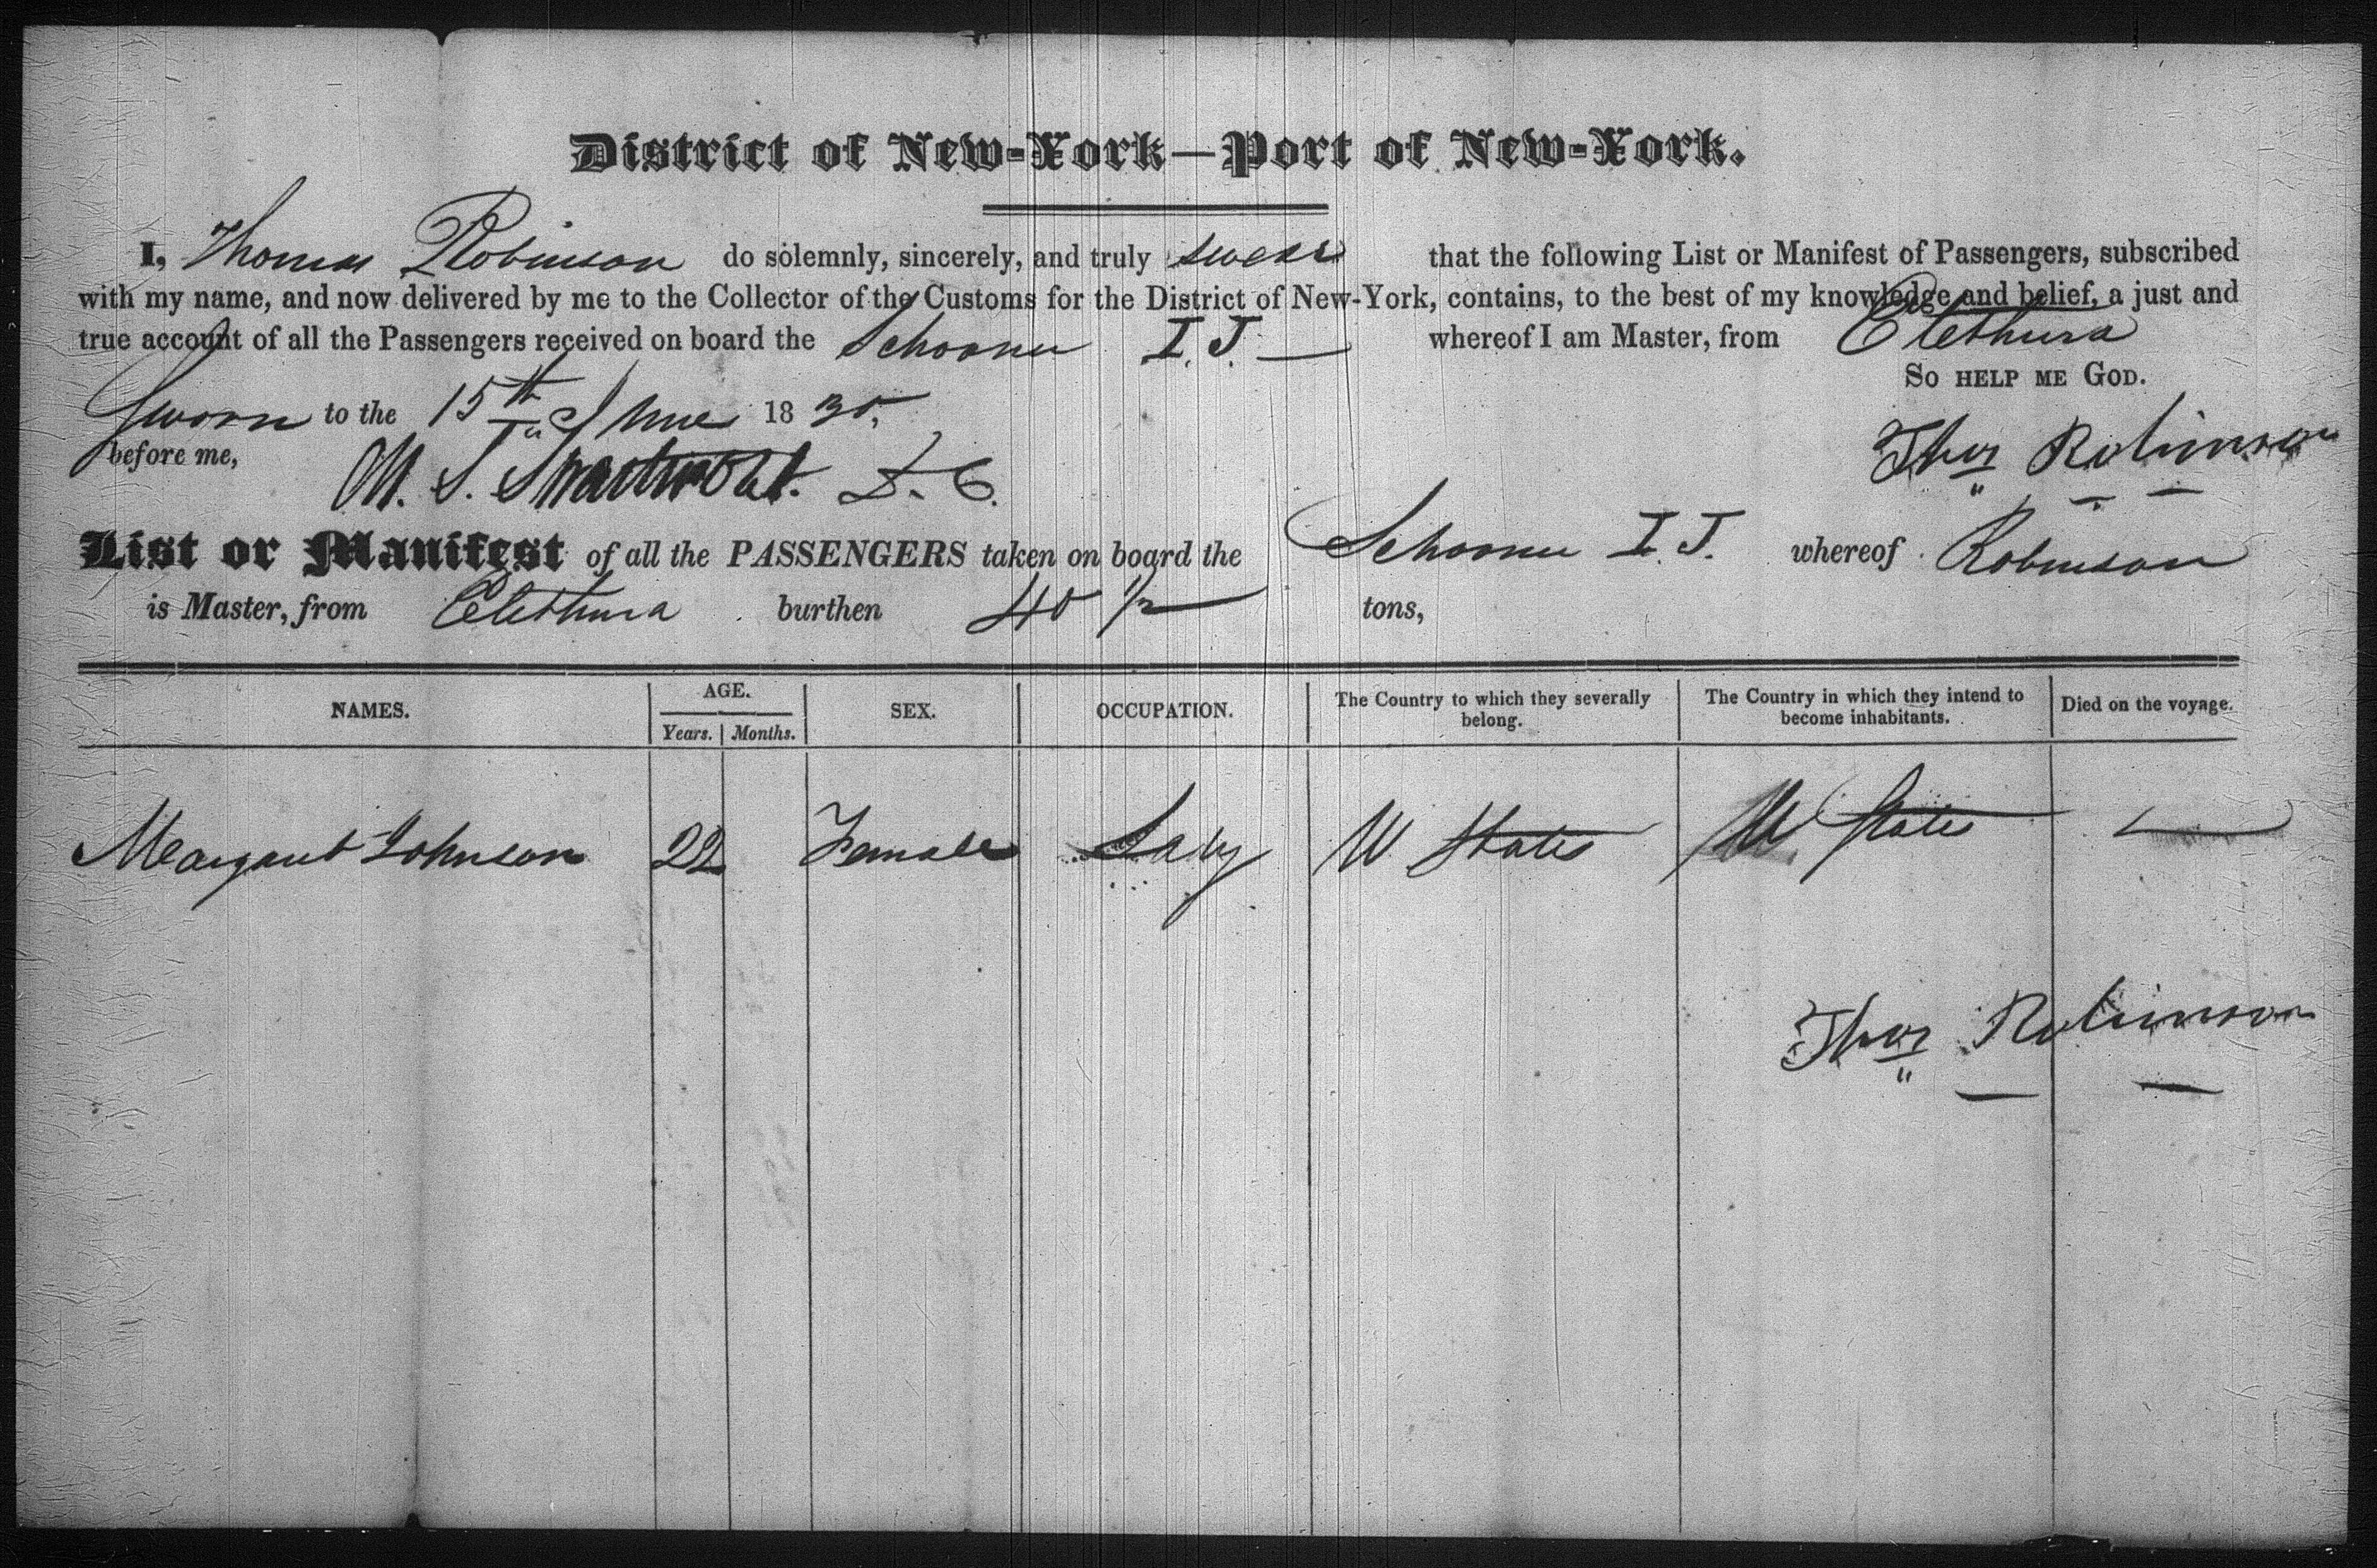 District of New-York—Port of New-York.
I, Thomas Robinson do solemnly, sincerely, and truly swear that the following List or Manifest of Passengers, subscribed
with my name, and now delivered by me to the Collector of the Customs for the District of New-York, contains, to the best of my knowledge and belief, a just and
true account of all the Passengers received on board the Schooner I. J. whereof I am Master, from Elethura
So help me God.
Sworn to the 15th June 1830,
before me, M. S. Swartwout. D. C.
Thos Robinson
List or Manifest of all the PASSENGERS taken on board the Schooner I. J. whereof Robinson
is Master, from Elethura burthen 40 1/2 tons,
NAMES. AGE. SEX. OCCUPATION. The Country to which they severally belong. The Country in which they intend to become inhabitants. Died on the voyage.
Years. Months.
Margaret Johnson 22 Female Lady U States U States —
Thos Robinson